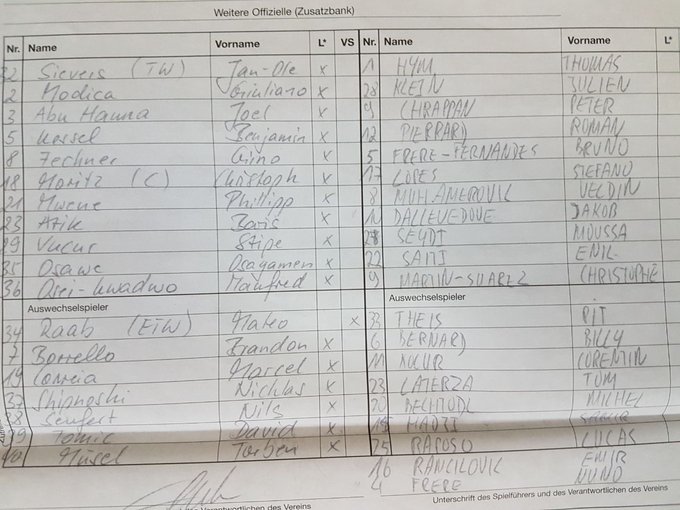 Weitere Offizielle (Zusatzbank)
Nr. Name Vorname L* VS Nr. Name Vorname L*
32 Sievers (TW) Jan-Ole x 1 HYM THOMAS
2 Modica Giuliano x 28 KLEIN JULIEN
3 Abu Hanna Joel x 9 CHRAPPAN PETER
5 Kessel Benjamin x 12 PIERRARD ROMAN
8 Fechner Gino x 5 FRERE-FERNANDES BRUNO
18 Moritz (C) Christoph x 17 LOPES STEFANO
21 Mwene Phillipp x 8 MUHAMEROVIC VELDIN
23 Atik Baris x DALLEVEDOVE JAKOB
29 Vucur Stipe x SEYDI MOUSSA
35 Osawe Osayamen x 22 SAITI ENIL
36 Osei-Kwadwo Manfred x 9 MARTIN-SUAREZ CHRISTOPHE
Auswechselspieler Auswechselspieler
34 Raab (ETW) Mateo x 33 THEIS PIT
7 Borrello Brandon x 6 BERNARD BILLY
19 Correia Marcel x 11 KOCUR CORENTIN
37 Shipnoski Nicklas x 23 LATERZA TOM
28 Seufert Nils x 20 BECHTOLD MICHEL
39 Tomic David x HADJI SAMIR
Müsel Torben x 25 RAPOSO LUCAS
16 RANCILOVIC EMIR
4 FRERE NUNO
Verantwortlichen des Vereins Unterschrift des Spielführers und des Verantwortlichen des Vereins